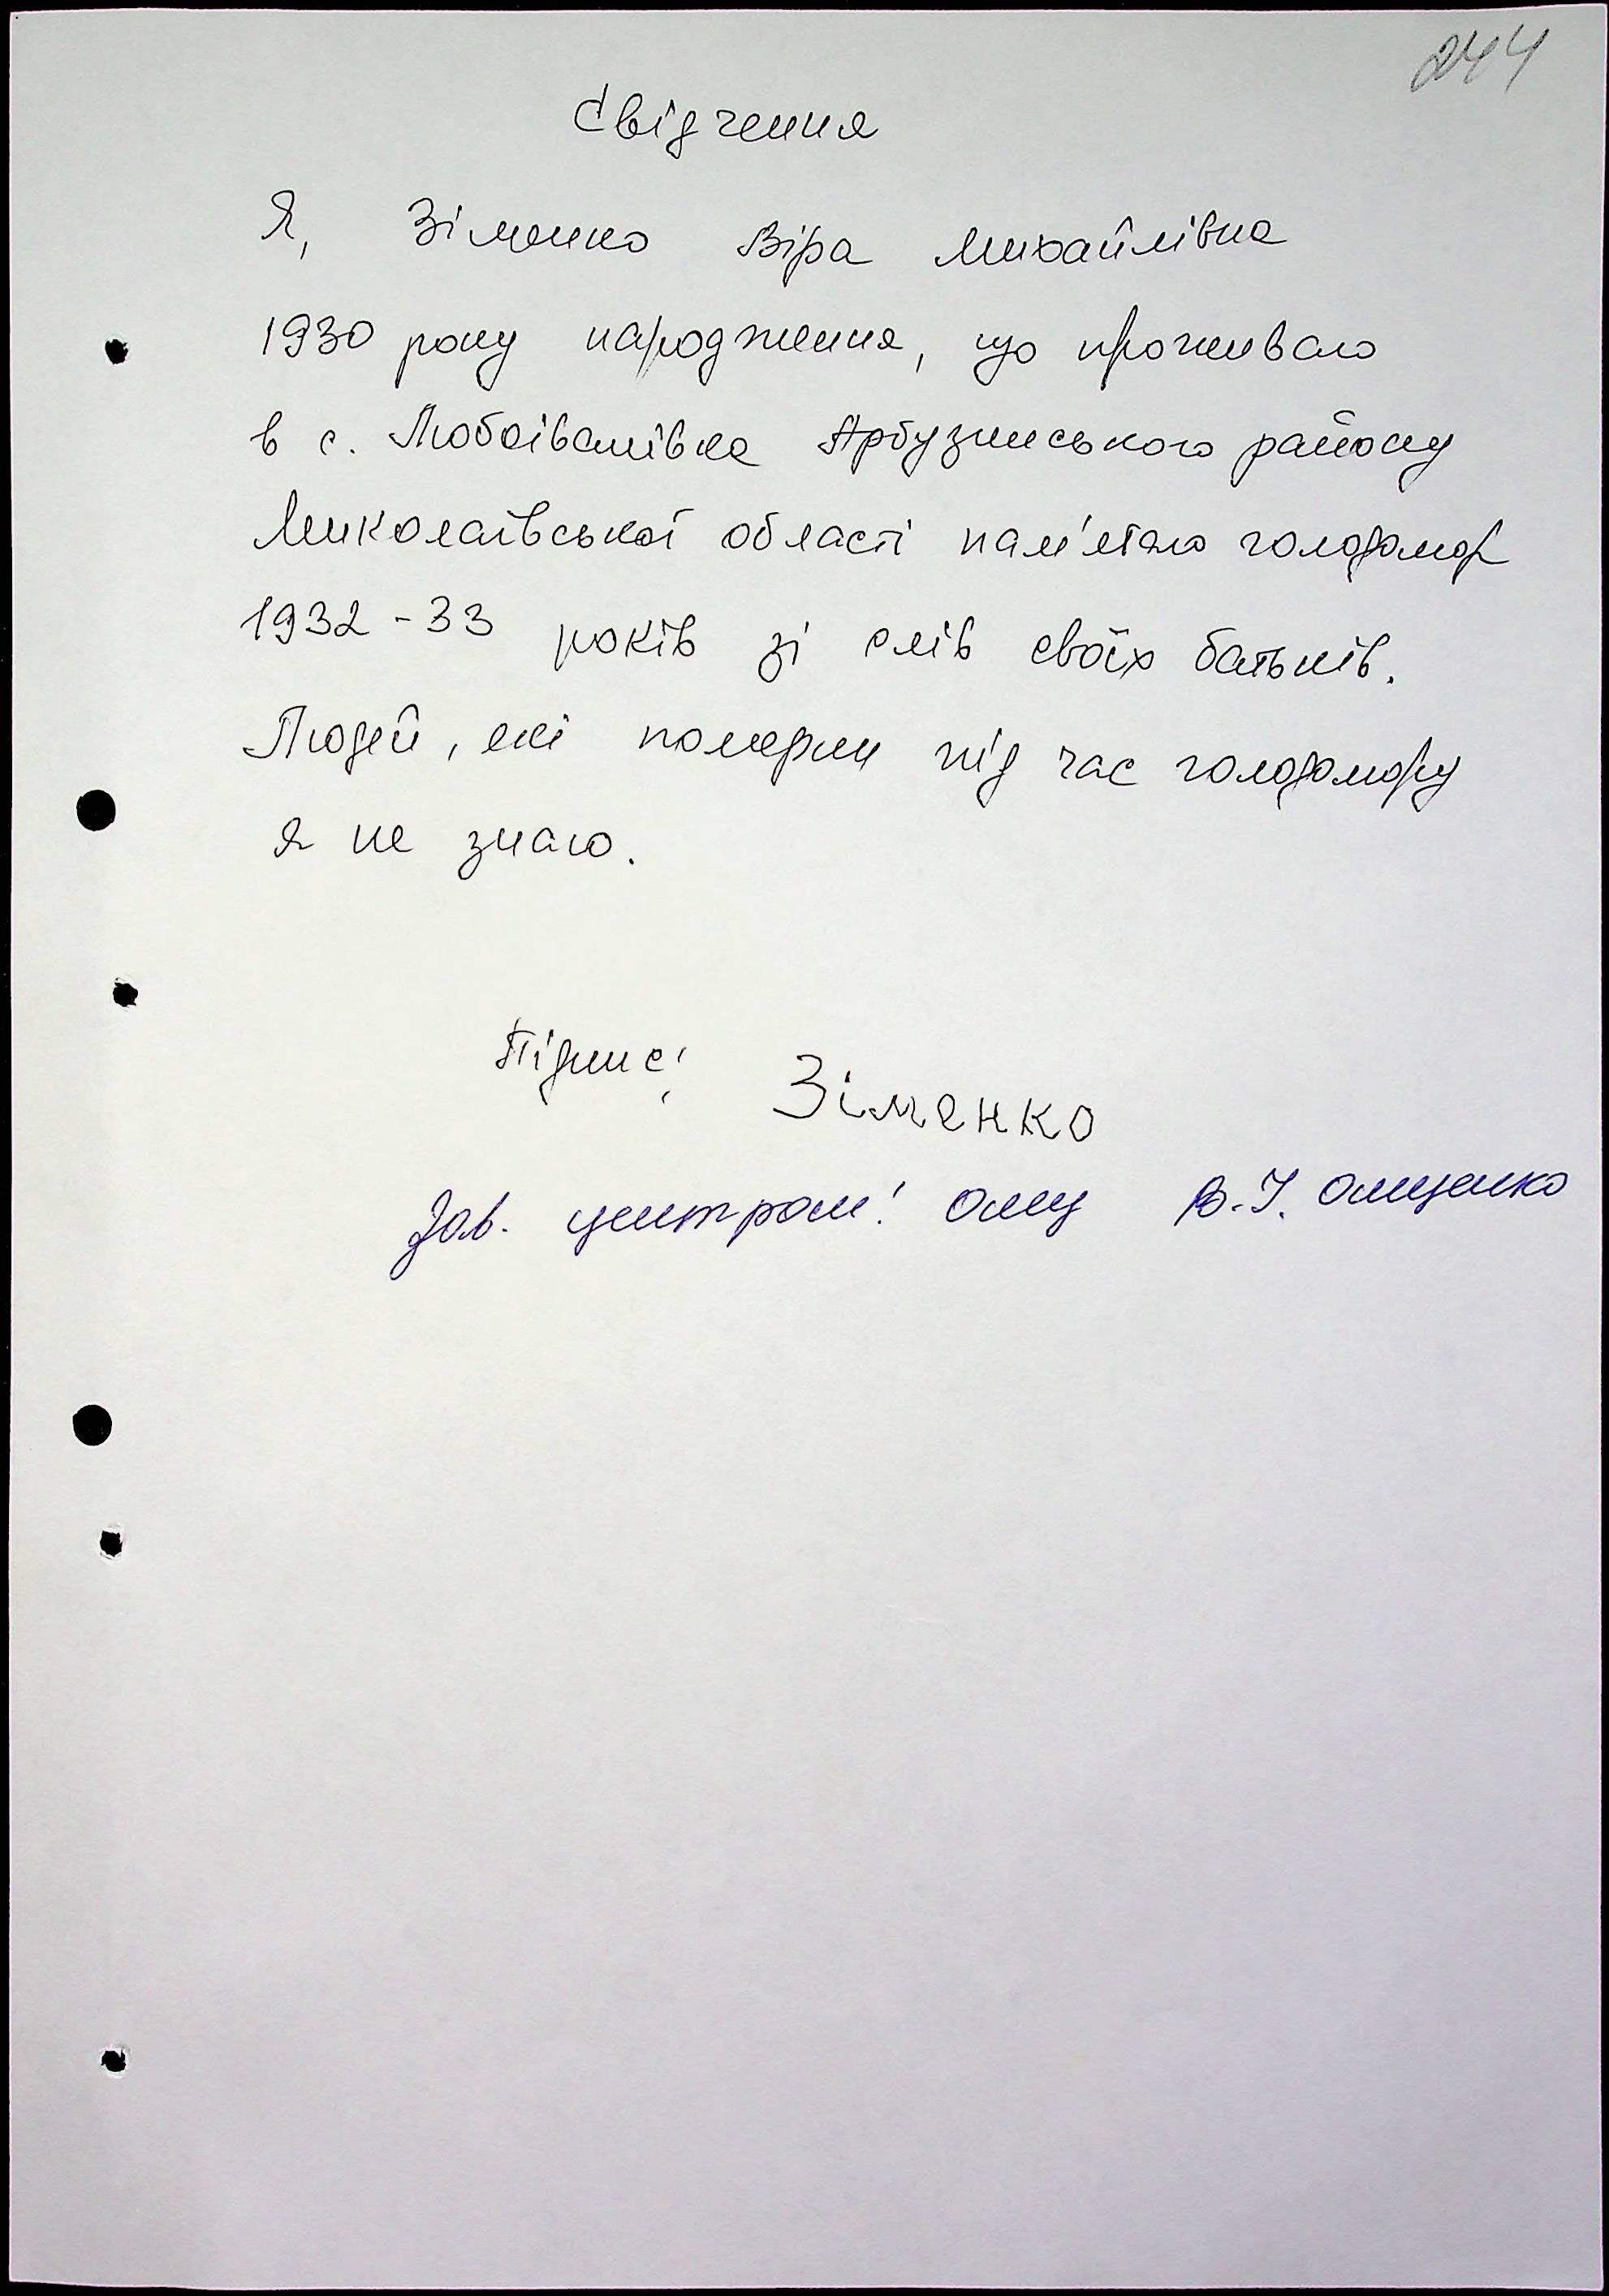 244
Свідчення
Я, Зіменко Віра Михайлівна
1930 року народження, що проживаю
в с. Любоіванівка Арбузинського району
Миколаївської області пам'ятаю голодомор
1932-33 років зі слів своїх батьків.
Людей, які померли під час голодомору
я не знаю.
Підпис: Зіменко
Зав. центром: Онищ В.І. Онищенко